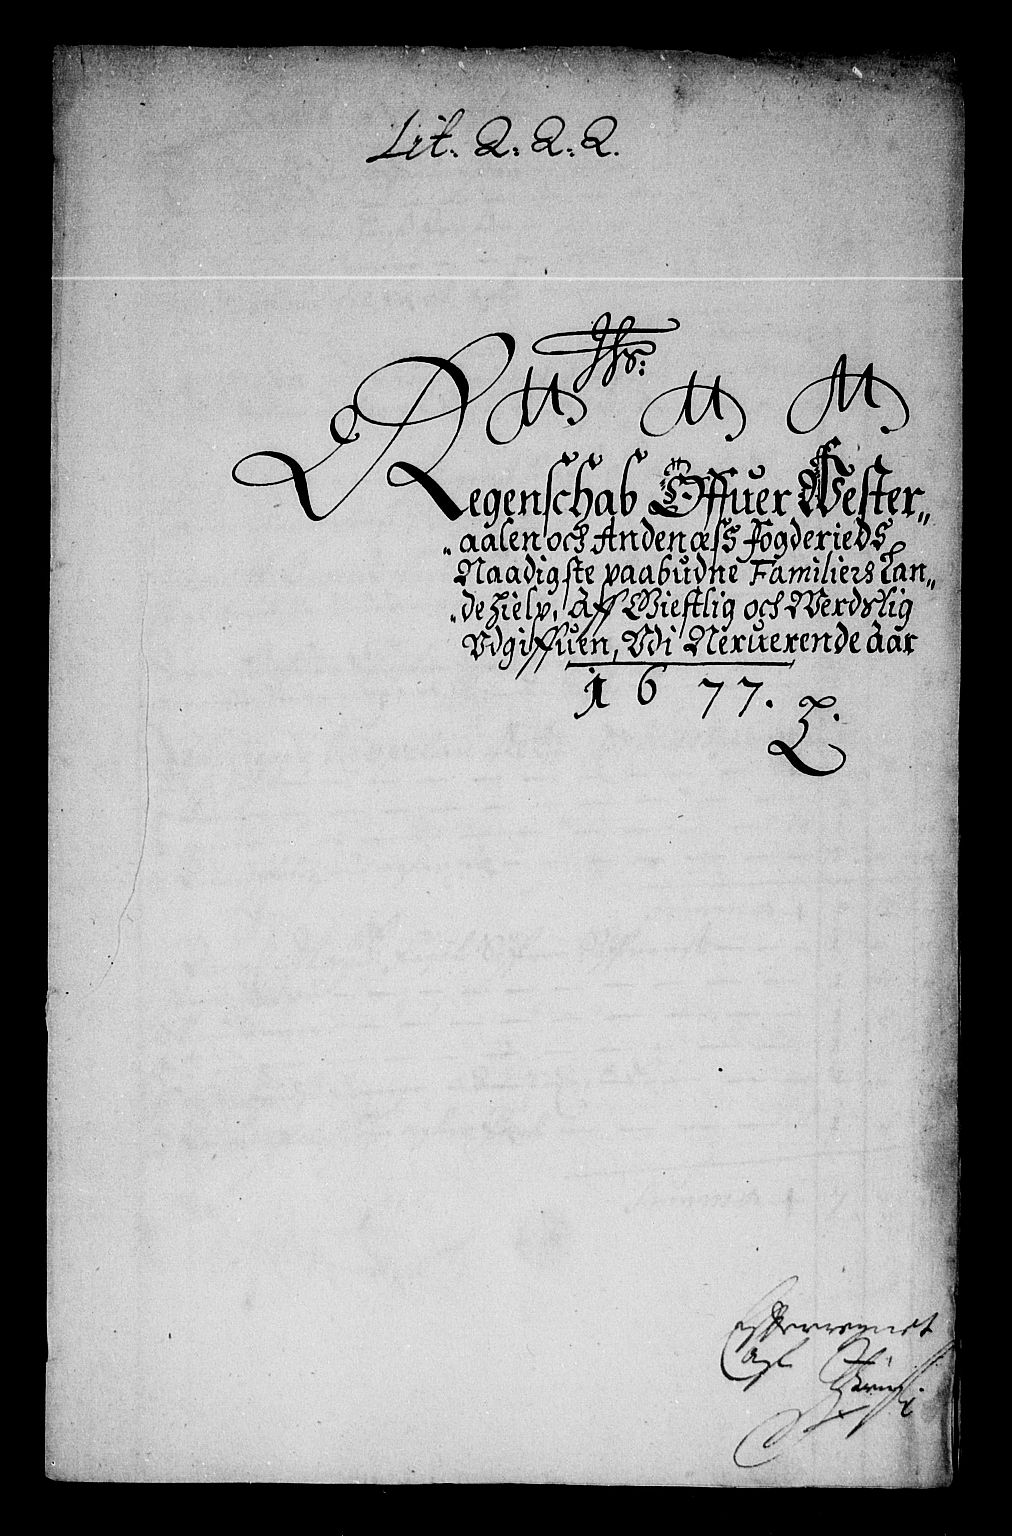 Lit. Q. Q. Q.
Jhs:
Regenschab Offuer Wester„
„aalen och Andenæss Fogderieds
Naadigste paabudne Familiers Lan„
„dehielp, Aff Giestlig och Werdslig
Vdgiffuen, Vdi Neruerende Aar
1677.
Efferregnet